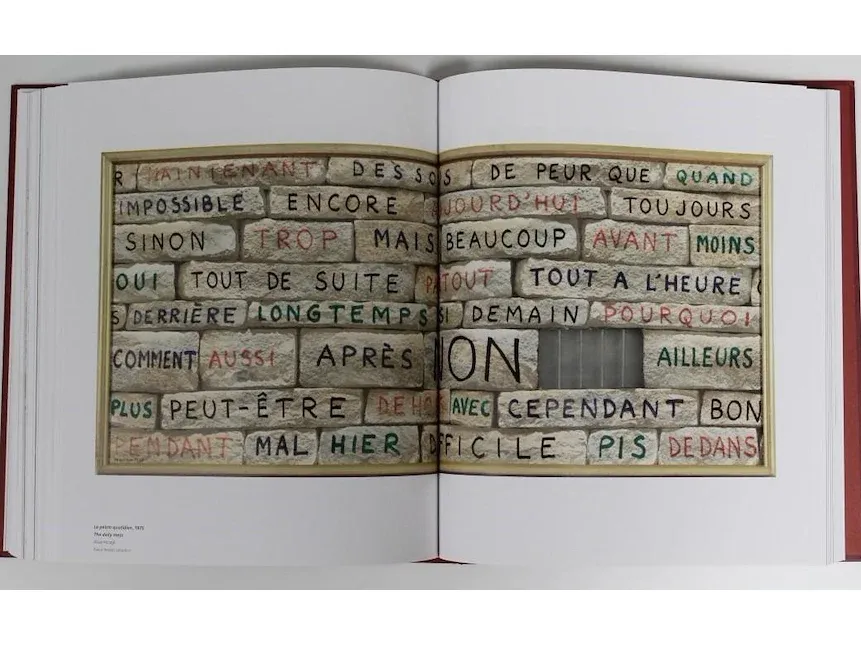 R MAINTENANT DESSOUS DE PEUR QUE QUAND
IMPOSSIBLE ENCORE AUJOURD'HUI TOUJOURS
SINON TROP MAIS BEAUCOUP AVANT MOINS
OUI TOUT DE SUITE PARTOUT TOUT A L'HEURE
S DERRIÈRE LONGTEMPS SI DEMAIN POURQUOI
COMMENT AUSSI APRÈS NON AILLEURS
PLUS PEUT-ÊTRE DEHORS AVEC CEPENDANT BON
PENDANT MAL HIER DIFFICILE PIS DEDANS
The daily mess